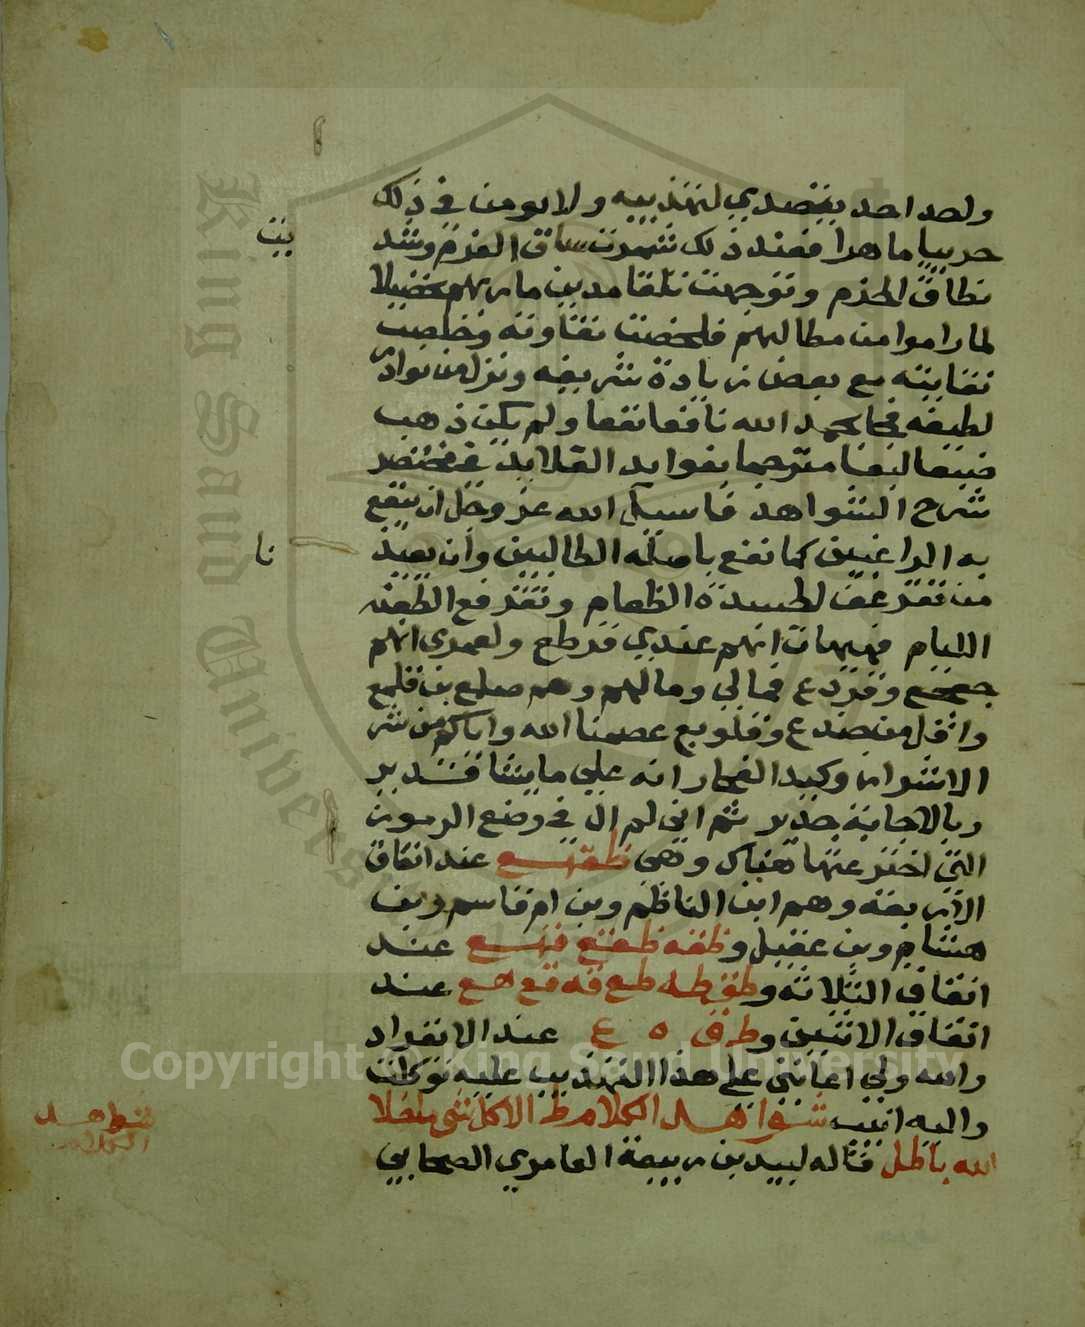 ولصد احد يتصدي لتهذيبه ولا يومن في ذلك
خريتا ماهرا فعند ذلك شمرت ساق العزم وشد
بيت
نطاق الحزم وتوجهت تلقا مدين ماربهم تحصيلا
لما راموا من مطالبهم فلخصت نقاوته وخلصت
نفايته مع بعض زيادة شريفه ونزر من نوادر
لطيفه فجا بحمد الله نافعا نقعا ولم يكن ذهب
ضيعا ليعا مترجما بفوايد القلايد في مختصر
شرح الشواهد فاسيل الله عز وجل ان ينفع
به الراغبين كما نفع باصله الطالبين وان يعيذ
نا
من
اللئام فهيهات انهم عندي قرطع ولعمري انهم
وقردع فمالي ومالهم وهم صلمع بن قلمع
واقل من صدع وقلوبع عصمنا الله واياكم من شر
الاشرار وكيد الفجار انه علي ما يشا قدير
وبالاجابة جدير ثم اني لم ال في وضع الرموز
التي اخترعتها هناك وهي ظقهع عند اتفاق
الاربعة وهم ابن الناظم وبن ام قاسم وبن
هشام وبن عقيل وظقه ظقع قهع عند
اتفاق الثلاثة وظق ظه ظع قه قع هع عند
اتفاق الاثنين وظ ق ه ع عند الانفراد
والله ولي اعانتي علي هذا التهذيب عليه توكلت
واليه انيب شواهد الكلام ظ الا كل شي ما خلا
شواهد
الكلام
الله باطل قاله لبيد بن ربيعة العامري الصحابي
King Saud University
Copyright © King Saud University